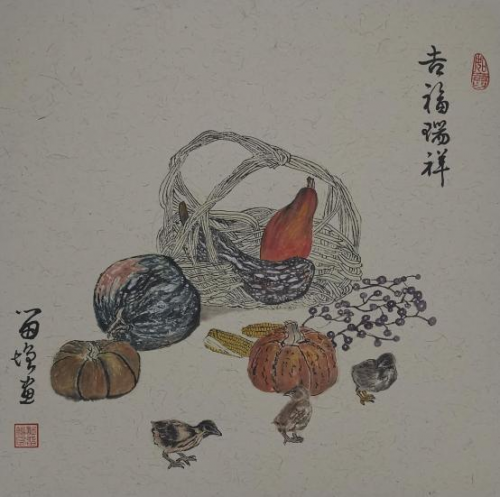 吉福瑞祥
留增画